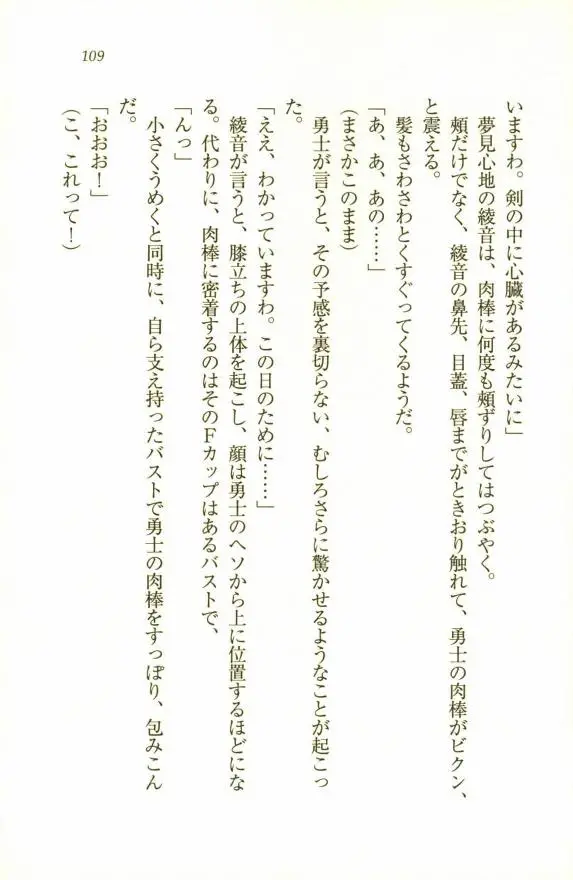 109
いますわ。剣の中に心臓があるみたいに」
夢見心地の綾音は、肉棒に何度も頰ずりしてはつぶやく。
頰だけでなく、綾音の鼻先、目蓋、唇までがときおり触れて、勇士の肉棒がビクン、
と震える。
髪もさわさわとくすぐってくるようだ。
「あ、あ、あの……」
(まさかこのまま)
勇士が言うと、その予感を裏切らない、むしろさらに驚かせるようなことが起こっ
た。
「ええ、わかっていますわ。この日のために……」
綾音が言うと、膝立ちの上体を起こし、顔は勇士のヘソから上に位置するほどにな
る。代わりに、肉棒に密着するのはそのFカップはあるバストで、
「んっ」
小さくうめくと同時に、自ら支え持ったバストで勇士の肉棒をすっぽり、包みこん
だ。
「おおお!」
(こ、これって!)